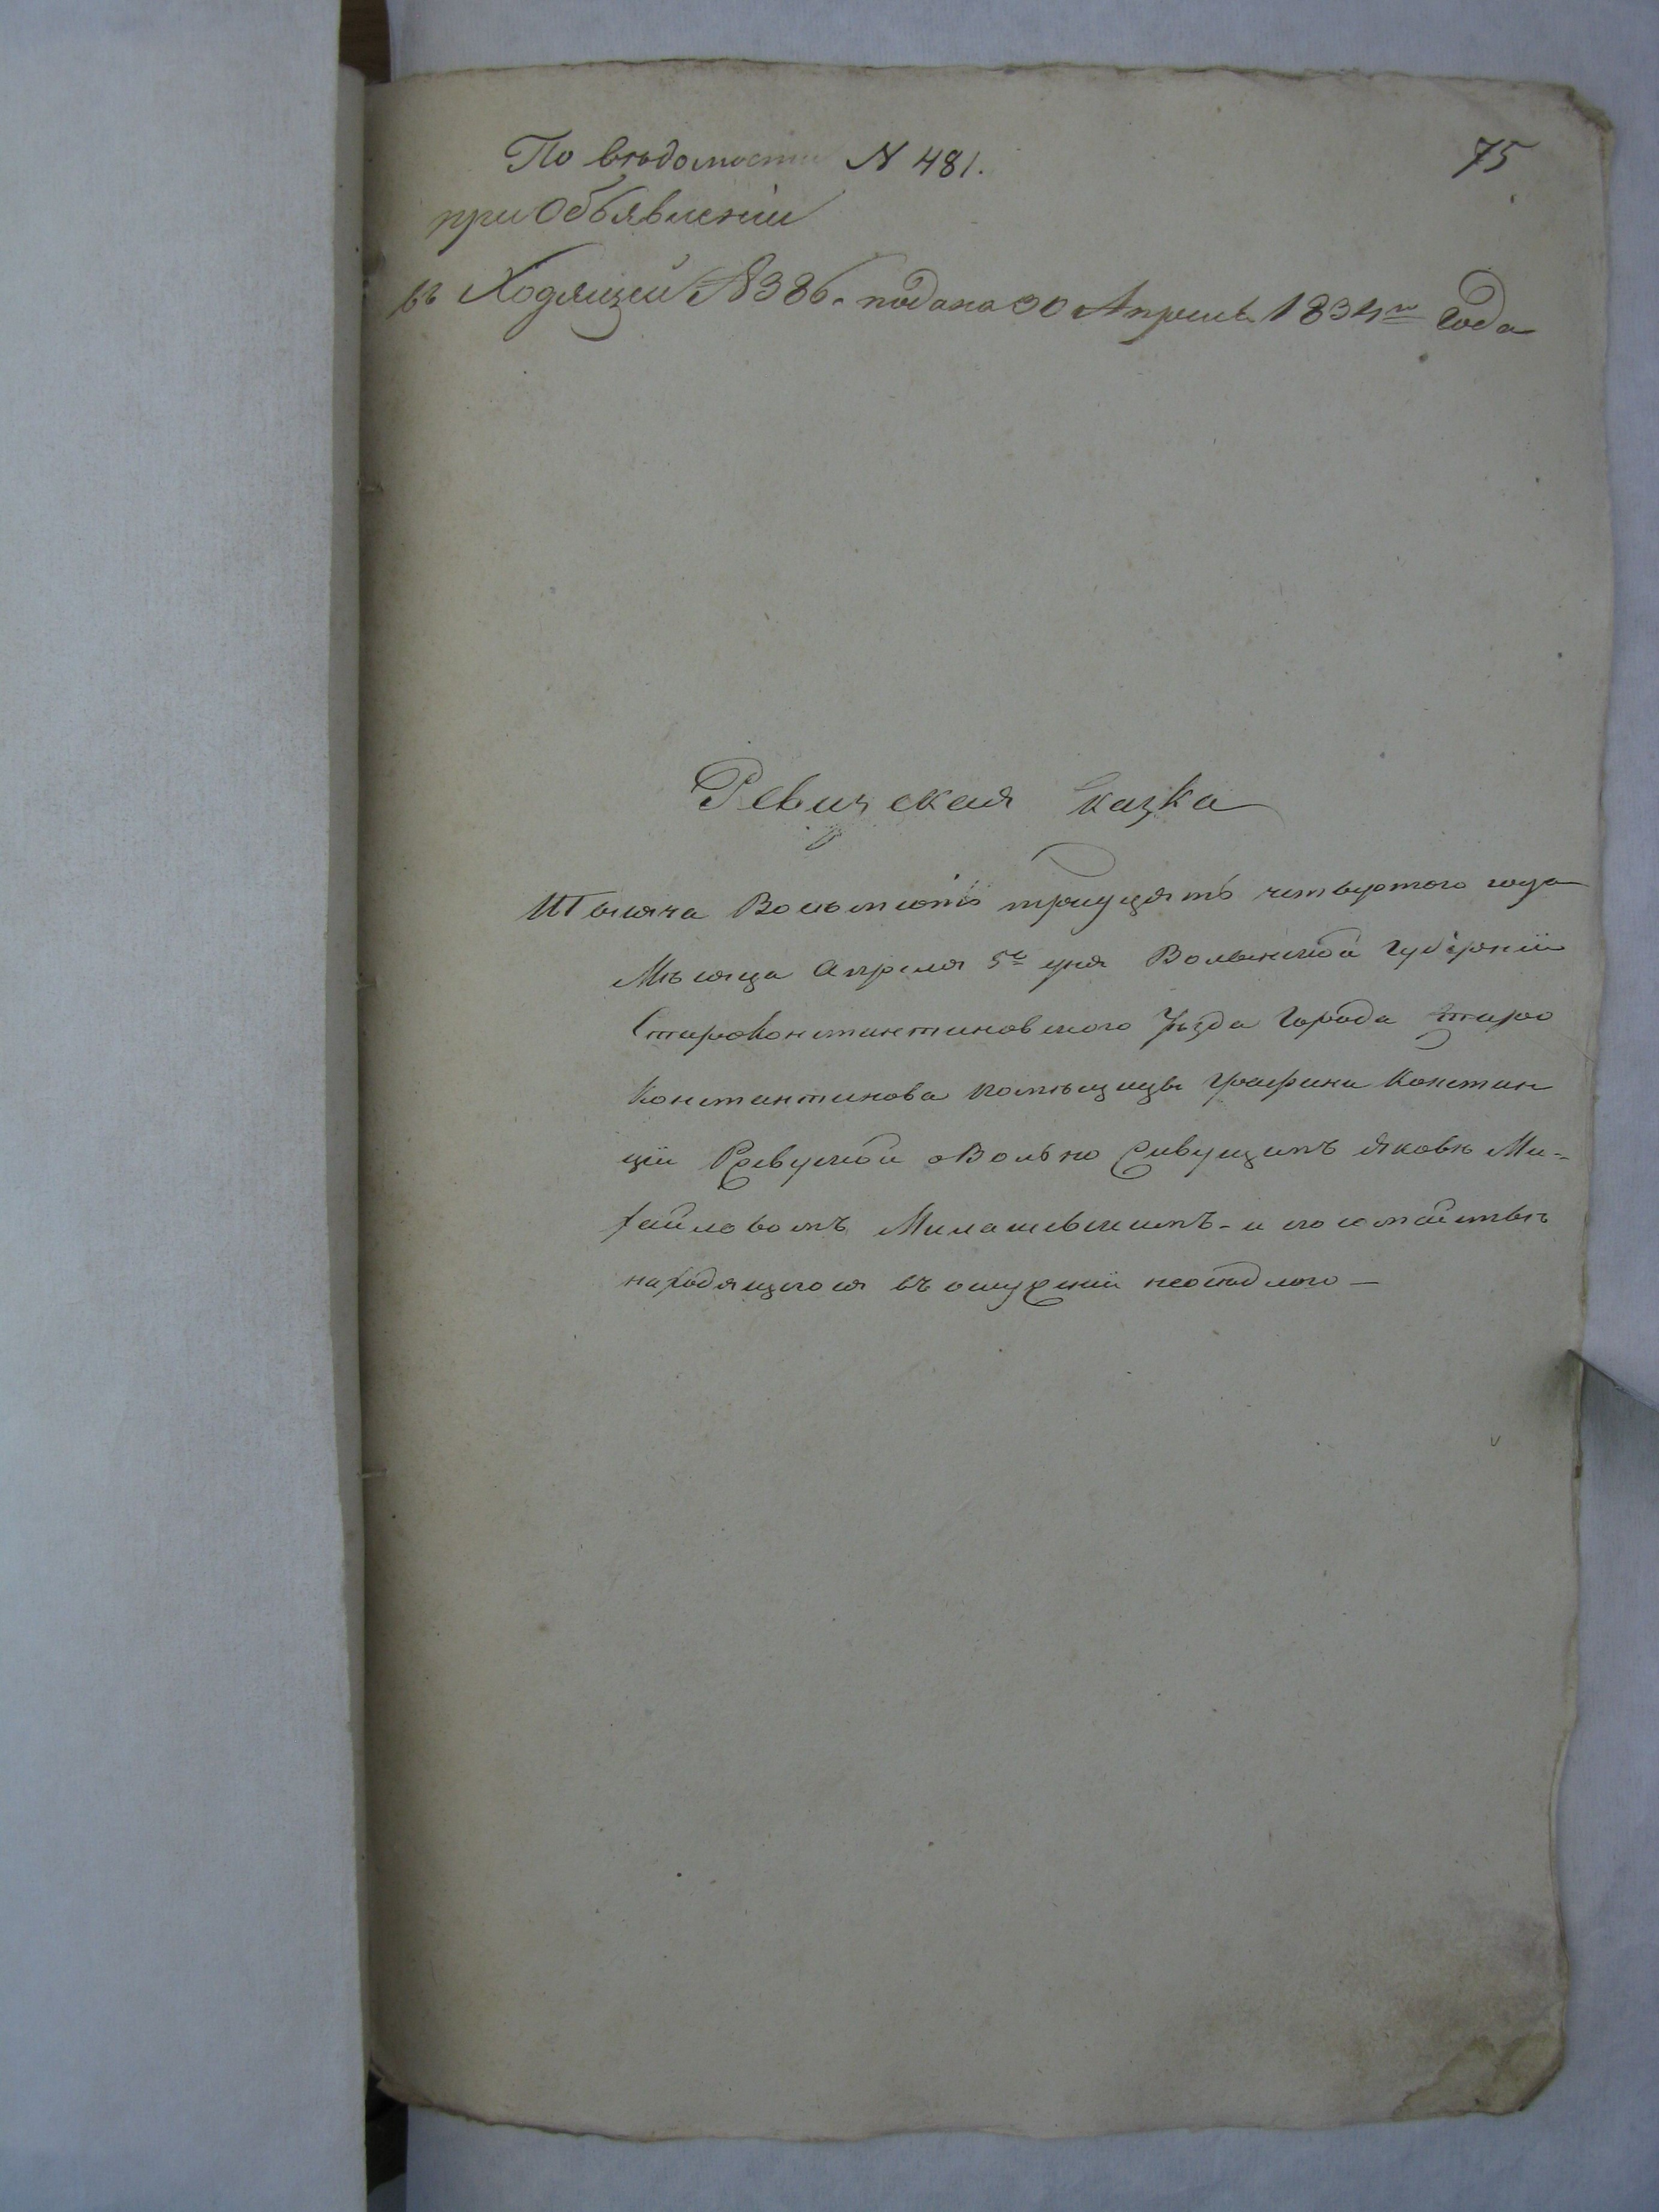 По вѣдомости N 481.
75
при Объявленіи
въ Ходящей N 386. подана 30 Апреля 1834го Года
Ревизская Сказка
Тысяча Восемсотъ тридцять четвертого года
Мѣсяца Апреля 5го дня Волынской Губерніи
Староконстантиновского Уѣзда Города Старо
константинова помѣщицы Графини Констан
ціи Ревуской о Вольно живущимъ Яковѣ Ми-
хайловомъ Милашевскимъ и его семействѣ
находящегося въ